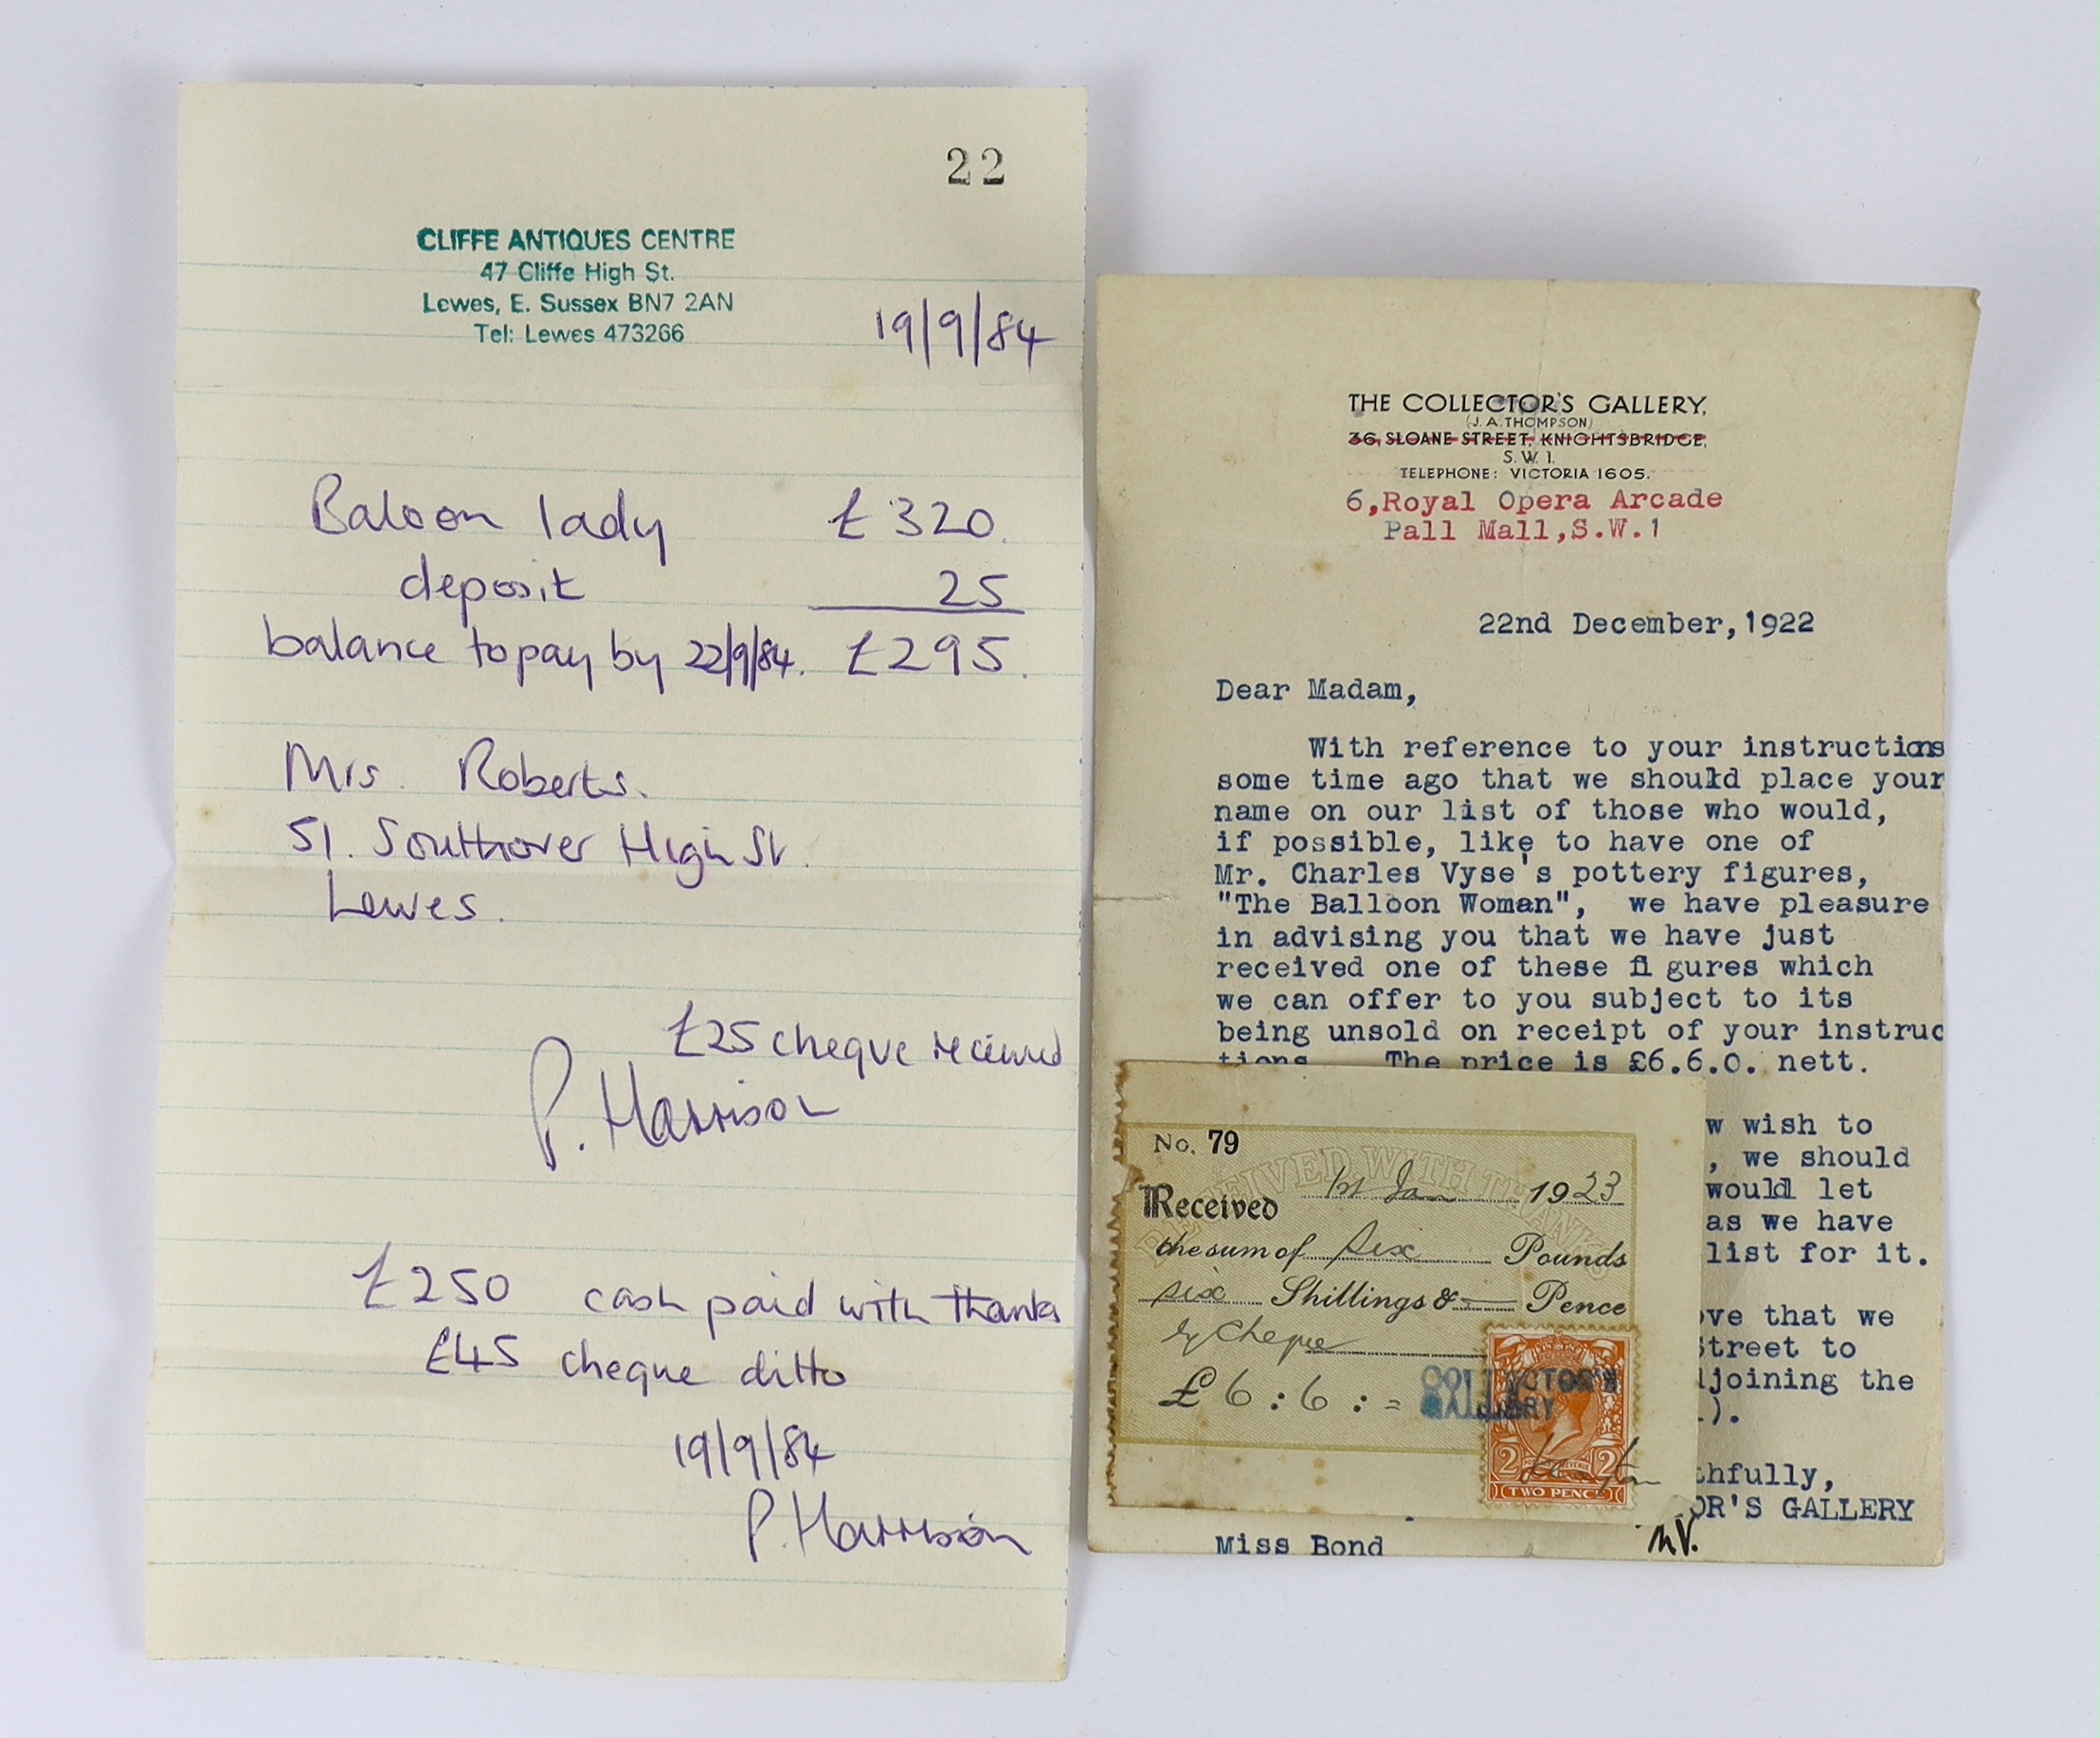 22
CLIFFE ANTIQUES CENTRE
47 Cliffe High St.
Lewes, E. Sussex BN7 2AN
Tel: Lewes 473266
19/9/84
Baloon lady £320.
deposit 25
balance to pay by 22/9/84. £295.
Mrs. Roberts.
51. Southover High St.
Lewes.
£25 cheque received
P. Harrison
£250 cash paid with thanks
£45 cheque ditto
19/9/84
P. Harrison
THE COLLECTOR'S GALLERY,
(J. A. THOMPSON)
36, SLOANE STREET, KNIGHTSBRIDGE,
S. W. 1.
TELEPHONE: VICTORIA 1605.
6,Royal Opera Arcade
Pall Mall,S.W.1
22nd December,1922
Dear Madam,
With reference to your instructions
some time ago that we should place your
name on our list of those who would,
if possible, like to have one of
Mr. Charles Vyse's pottery figures,
"The Balloon Woman", we have pleasure
in advising you that we have just
received one of these figures which
we can offer to you subject to its
being unsold on receipt of your instruc
tions. The price is £6.6.0. nett.
w wish to
, we should
would let
as we have
list for it.
ove that we
Street to
djoining the
).
thfully,
OR'S GALLERY
M.V.
Miss Bond
No. 79
RECEIVED WITH THANKS
Received 1st Jan 1923
the sum of six Pounds
six Shillings & — Pence
by Cheque
£ 6 : 6 : =
COLLECTOR'S
GALLERY
TWO PENCE
2 2